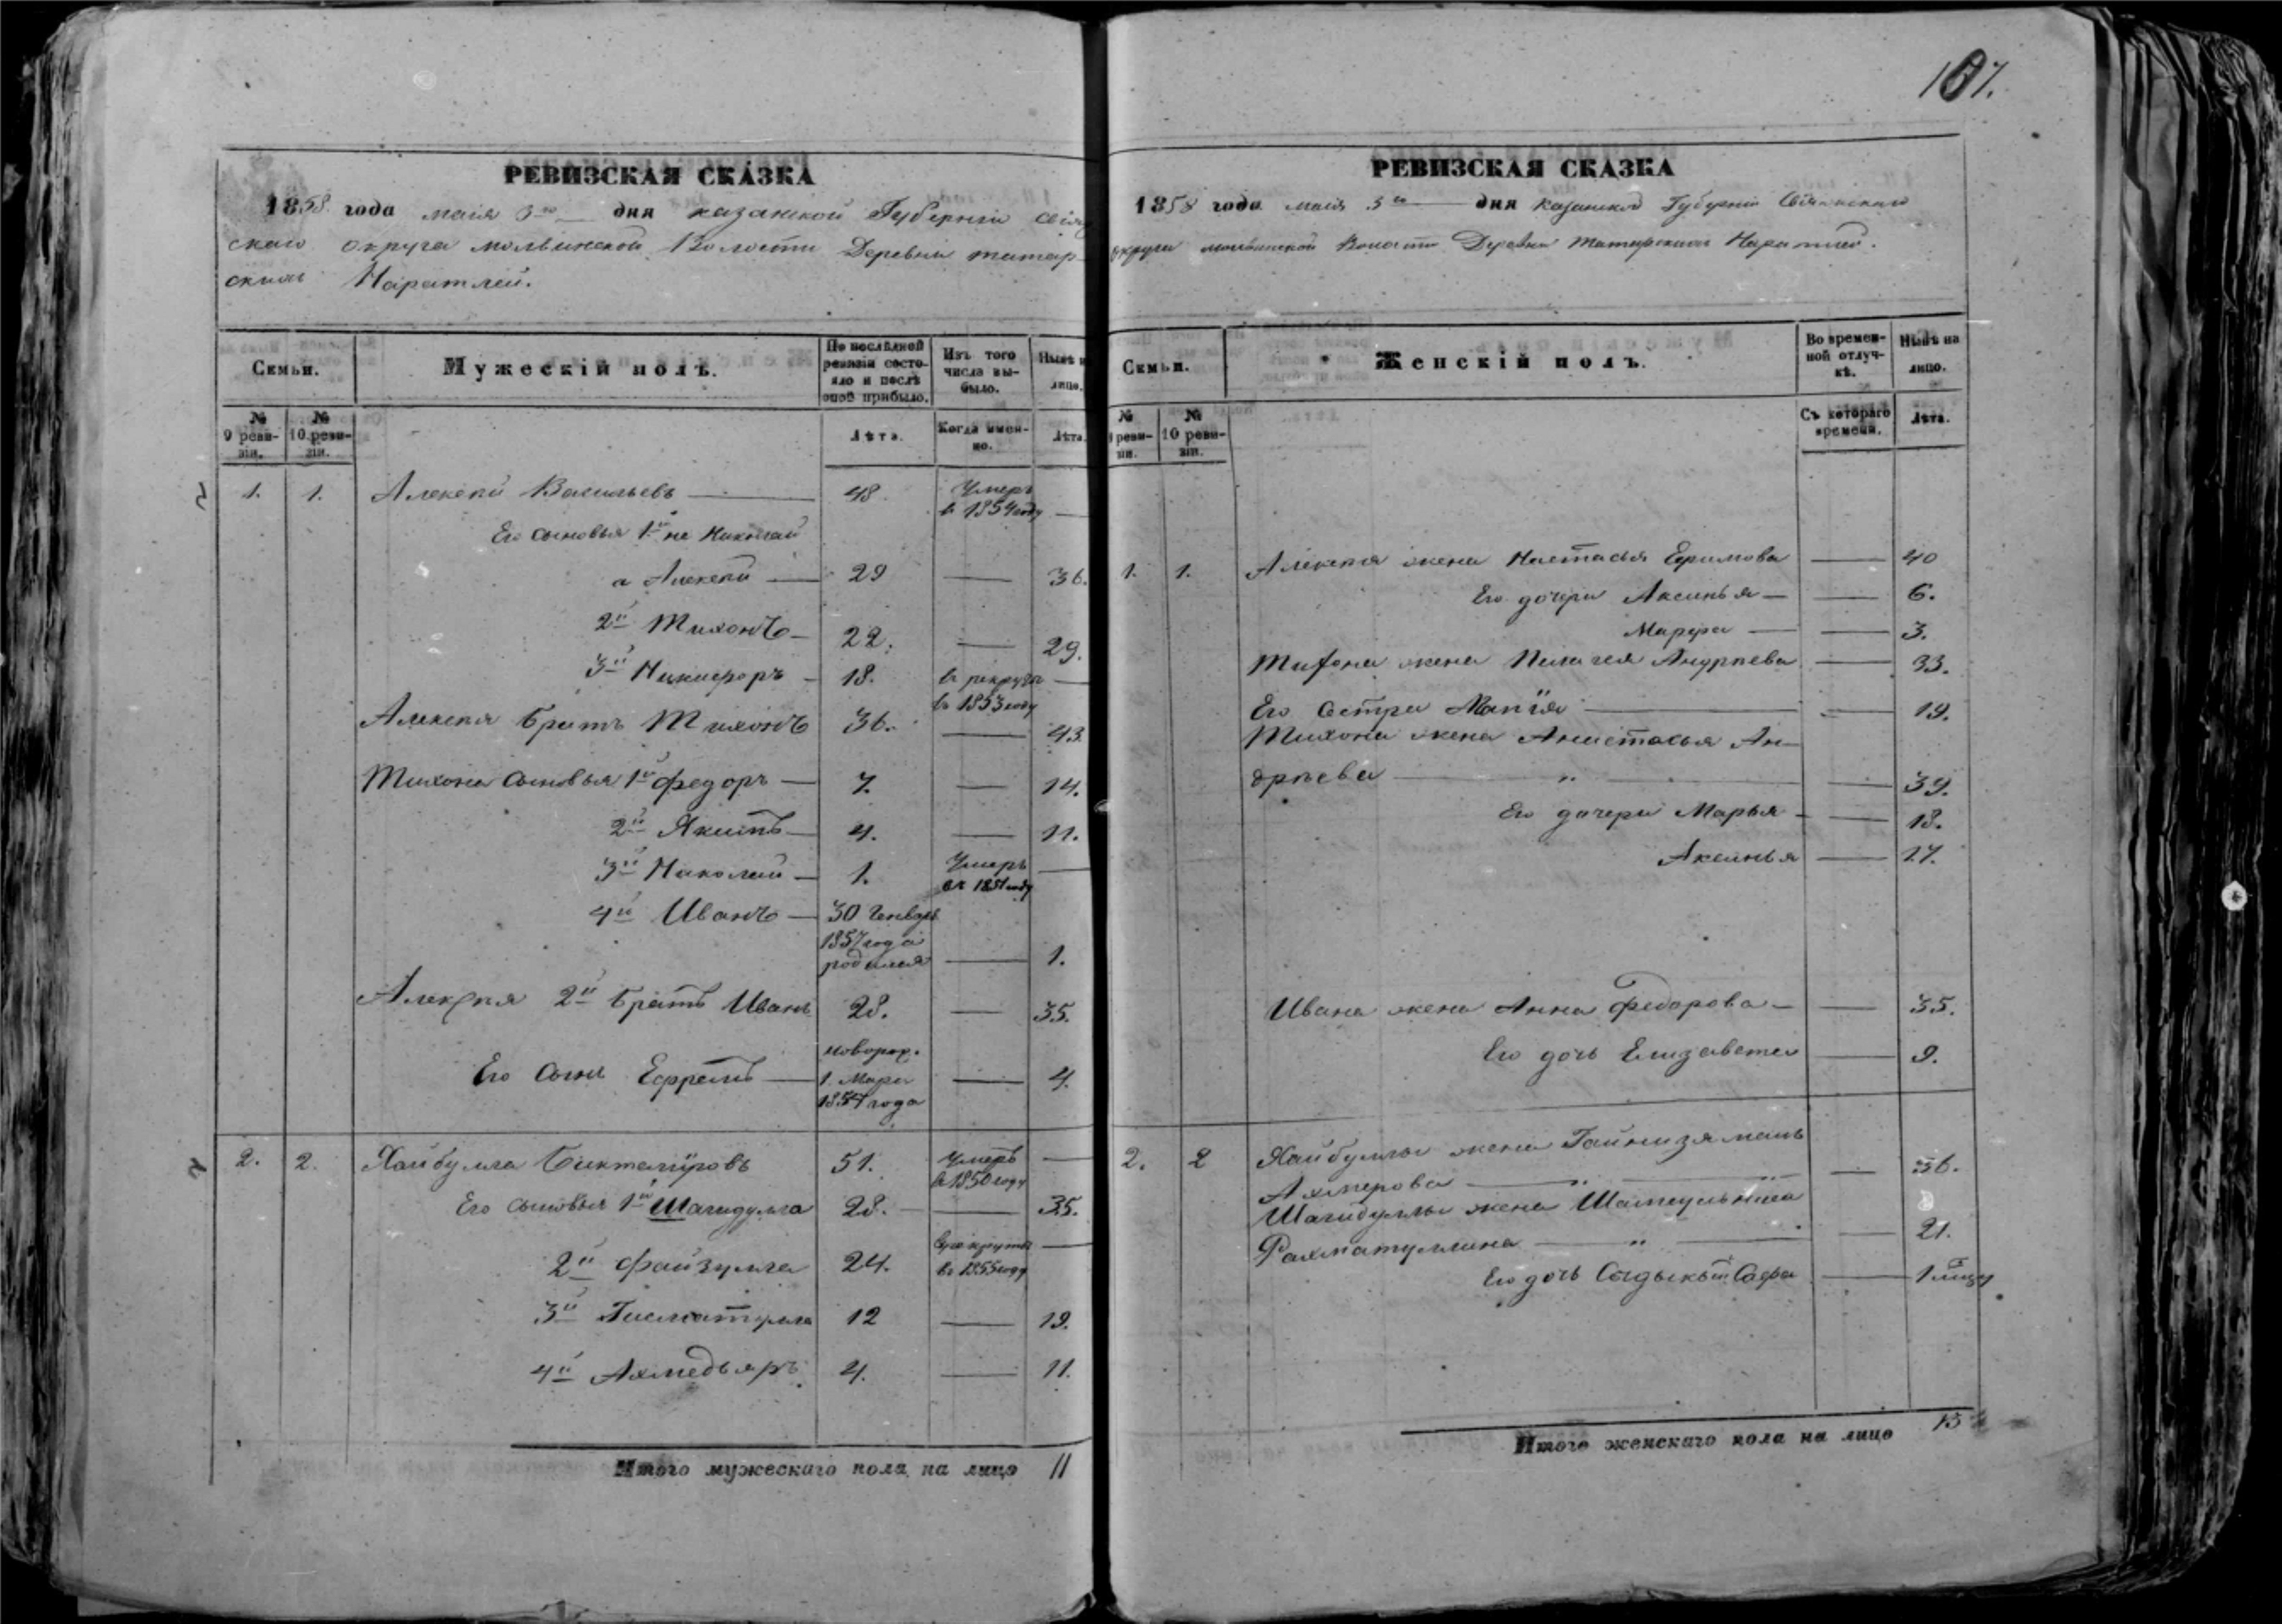 107.
РЕВИЗСКАЯ СКАЗКА
1858 года маія 3го дня казанской Губерніи Свіяж
скаго округа молвинской Волости Деревни татар
скихъ Наратлей.
Семьи. Мужескій полъ. По послѣдней ревизіи состояло и послѣ оной прибыло. Изъ того числа выбыло. Нынѣ на лицо.
№ 9 ревизіи. № 10 ревизіи. Лѣта. Когда именно. Лѣта.
1. 1. Алексѣй Васильевъ 48. Умеръ в 1854 году
Его сыновья 1й не Николай
а Алексѣй 29 36.
2й Тихонъ 22. 29.
3й Никифоръ 18. в рекруты в 1853 году
Алексѣя братъ Тихонъ 36. 43
Тихона сыновья 1й Федоръ 7. 14.
2й Якимъ 4. 11.
3й Николай 1. Умеръ въ 1851 году
4й Иванъ 30 Генваря
1857 года
родился 1.
Алексѣя 2й братъ Иванъ 28. 35.
новорож.
Его сынъ Ефремъ 1. Мар 4.
1854 года
2. 2. Хайбулла Биктагировъ 51. умеръ в 1850 году
Его сыновья 1й Шагидулла 28. 35.
2й Файзулла 24. в рекруты в 1855 году
3й Гисматулла 12 19.
4й Ахмедьяръ 4. 11.
Итого мужескаго пола на лицо 11
РЕВИЗСКАЯ СКАЗКА
1858 года маія 3го дня Казанской Губерніи Свіяжскаго
округа молвинской Волости Деревни Татарскихъ Наратлей.
Семьи. Женскій полъ. Во временной отлучкѣ. Нынѣ на лицо.
№ 9 ревизіи. № 10 ревизіи. Съ котораго времени. Лѣта.
1. 1. Алексѣя жена Настасья Ефимова 40
Его дочери Аксинья 6.
Марфа 3.
Тихона жена Пелагея Андрѣева 33.
Его сестра 19.
Тихона жена Анастасья Ан-
дрѣева " 39.
Его дочери Марья 18.
Аксинья 17.
Ивана жена Анна Федорова 35.
Его дочь Елизавета 9.
2. 2 Хайбуллы жена Гайнизямань
Ахмерова " " 56.
Шагидуллы жена
Рахматуллина " 21.
Его дочь 1
Итого женскаго пола на лицо 13